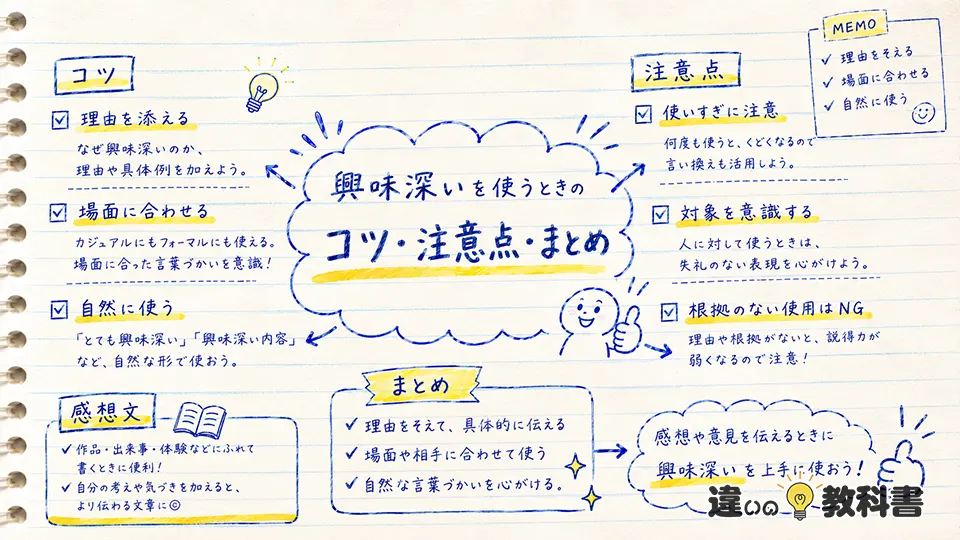 興味深いを使うときの
コツ・注意点・まとめ
コツ
理由を添える
なぜ興味深いのか、
理由や具体例を加えよう。
場面に合わせる
カジュアルにもフォーマルにも使える。
場面に合った言葉づかいを意識！
自然に使う
「とても興味深い」「興味深い内容」
など、自然な形で使おう。
注意点
使いすぎに注意
何度も使うと、くどくなるので
言い換えも活用しよう。
対象を意識する
人に対して使うときは、
失礼のない表現を心がけよう。
根拠のない使用はNG
理由や根拠がないと、説得力が
弱くなるので注意！
MEMO
理由をそえる
場面に合わせる
自然に使う
感想文
作品・出来事・体験などにふれて
書くときに便利！
自分の考えや気づきを加えると、
より伝わる文章に☺
まとめ
理由をそえて、具体的に伝える
場面や相手に合わせて使う
自然な言葉づかいを心がける。
感想や意見を伝えるときに
興味深いを上手に使おう！
違いの教科書